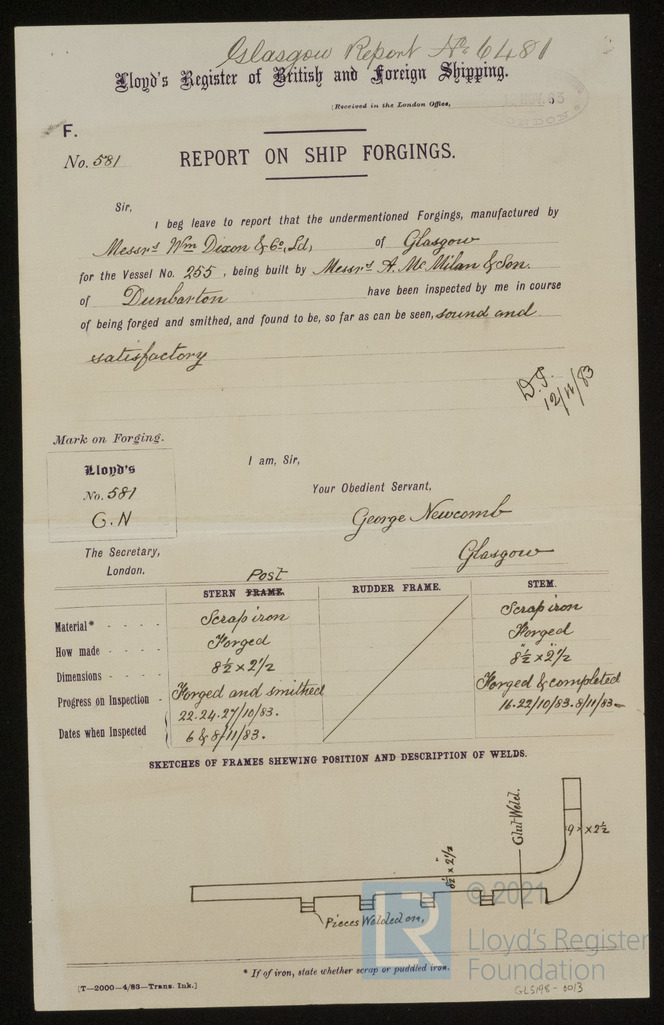 Glasgow Report No 6481
Lloyd's Register of British and Foreign Shipping.
(Received in the London Office,
NOV. 83
LONDON
F.
No. 581
REPORT ON SHIP FORGINGS.
Sir,
I beg leave to report that the undermentioned Forgings, manufactured by
Messrs Wm Dixon & Co., Ld, of Glasgow
for the Vessel No. 255, being built by Messrs A. McMilan & Son.
of Dunbarton have been inspected by me in course
of being forged and smithed, and found to be, so far as can be seen, sound and
satisfactory
12/11/83
Mark on Forging.
Lloyd's
No. 581
G.N
I am, Sir,
Your Obedient Servant,
George Newcomb
Glasgow
The Secretary,
London.
Post
STERN FRAME. RUDDER FRAME. STEM.
Material* - - - - Scrap iron Scrap iron
How made - - - - Forged Forged
Dimensions - - - - 8½ x 2½ 8½" x 2½"
Progress on Inspection - Forged and smithed Forged & completed
Dates when Inspected 22.24.27/10/83. 16.22/10/83. 8/11/83
6 & 8/11/83.
SKETCHES OF FRAMES SHEWING POSITION AND DESCRIPTION OF WELDS.
Glut Weld.
9 x 2½
8½ x 2½"
Pieces Welded on.
© 2021
LR
Lloyd's Register
Foundation
* If of iron, state whether scrap or puddled iron.
[T—2000—4/83—Trans. Ink.]
GLS198-0013